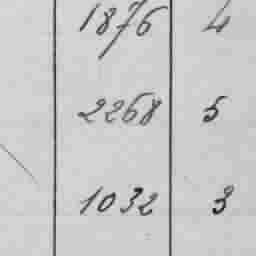 1876 4
2268 5
1032 3